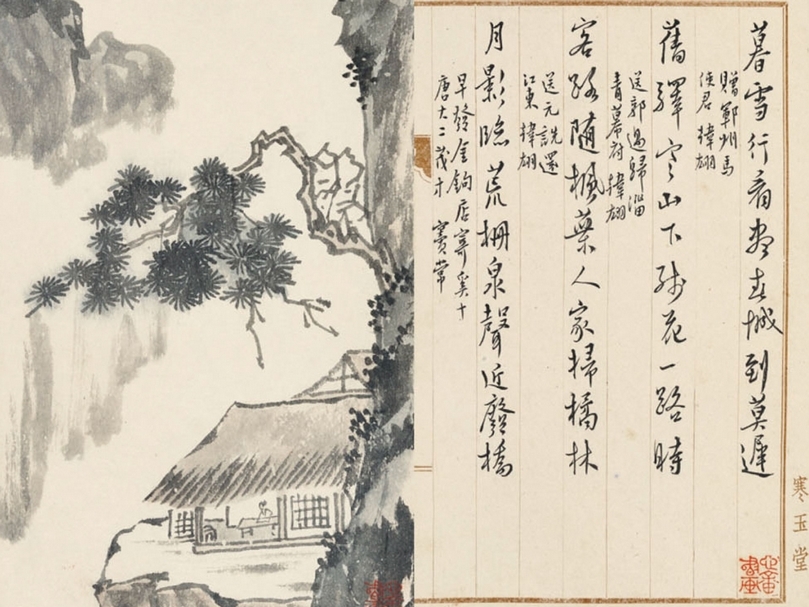 暮雪行看盡春城到莫遲
贈鄆州馬
使君 韓翃
舊驛山下殘花一路時
送郭過歸淄
青幕府 韓翃
客路隨楓葉人家掃橘林
送元詵還
江東 韓翃
月影臨荒柵泉聲近廢橋
早發金鉤店寄奚十
唐大二茂才 竇常
寒玉堂